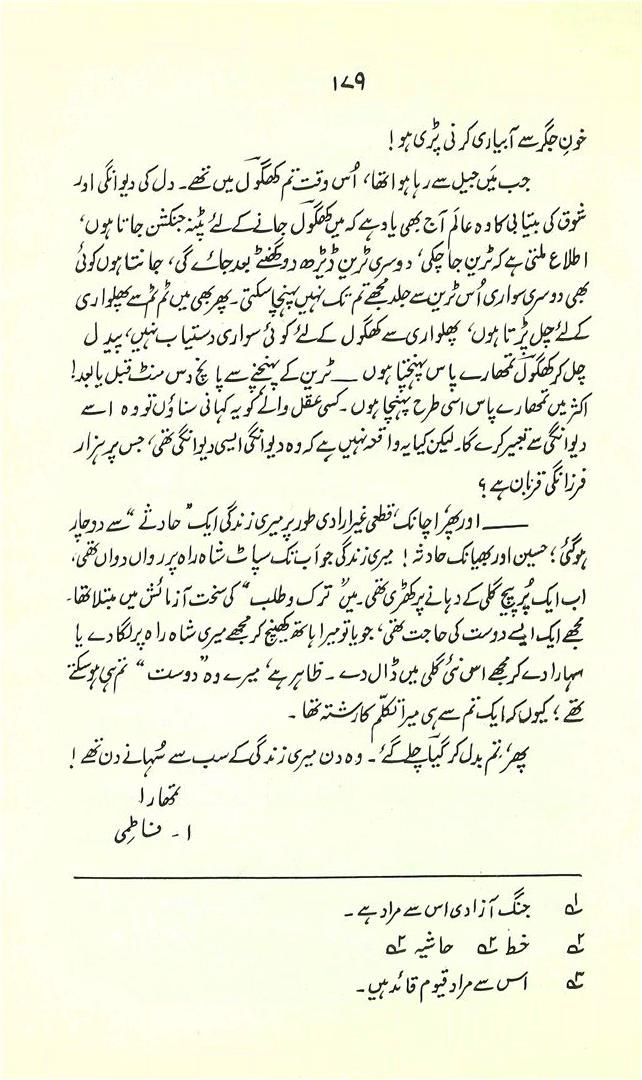 ۱۷۹
خونِ جگر سے آبیاری کرنی پڑی ہو!
جب میں جیل سے رہا ہوا تھا، اُس وقت تم کھگول میں تھے۔ دل کی دیوانگی اور
شوق کی بیتابی کا وہ عالم آج بھی یاد ہے کہ میں کھگول جانے کے لئے پٹنہ جنکشن جاتا ہوں،
اطلاع ملتی ہے کہ ٹرین جا چکی، دوسری ٹرین ڈیڑھ دو گھنٹے بعد جائے گی، جانتا ہوں کوئی
بھی دوسری سواری اُس ٹرین سے جلد مجھے تم تک نہیں پہنچا سکتی۔ پھر بھی میں ٹم ٹم سے پھلواری
کے لئے چل پڑتا ہوں، پھلواری سے کھگول کے لئے کوئی سواری دستیاب نہیں، پیدل
چل کر کھگول تمھارے پاس پہنچتا ہوں ــــ ٹرین کے پہنچنے سے پانچ دس منٹ قبل یا بعد!
اکثر میں تمھارے پاس اسی طرح پہنچا ہوں۔ کسی عقل والے کو یہ کہانی سناؤں تو وہ اسے
دیوانگی سے تعبیر کرے گا۔ لیکن کیا یہ واقعہ نہیں ہے کہ وہ دیوانگی ایسی دیوانگی تھی، جس پر ہزار
فرزانگی قربان ہے؟
ــــــ اور پھر اچانک قطعی غیر ارادی طور پر میری زندگی ایک "حادثے" سے دوچار
ہو گئی؛ حسین اور بھیانک حادثہ! میری زندگی جو اب تک سپاٹ شاہ راہ پر رواں دواں تھی،
اب ایک پُر پیچ گلی کے دہانے پر کھڑی تھی۔ میں "ترک و طلب" کی سخت آزمائش میں مبتلا تھا۔
مجھے ایک ایسے دوست کی حاجت تھی، جو یا تو میرا ہاتھ کھینچ کر مجھے میری شاہ راہ پر لگا دے یا
سہارا دے کر مجھے اس نئی گلی میں ڈال دے۔ ظاہر ہے، میرے وہ "دوست" تم ہی ہو سکتے
تھے؛ کیوں کہ ایک تم سے ہی میرا تکلّم کا رشتہ تھا۔
پھر، تم بدل کر گیا چلے گئے۔ وہ دن میری زندگی کے سب سے سُہانے دن تھے!
تمھارا
ا۔ فاطمی
۱؎ جنگ آزادی اس سے مراد ہے۔
۲؎ خط ۲؎ حاشیہ ۲؎
۳؎ اس سے مراد قیوم قائد ہیں۔